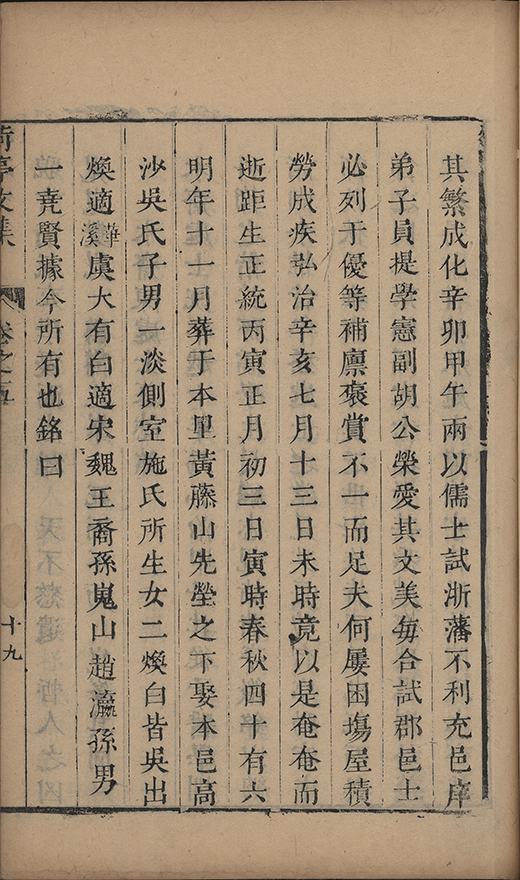 其繁成化辛卯甲午兩以儒士試浙藩不利充邑庠
弟子員提學憲副胡公榮愛其文美每合試郡邑士
必列于優等補廪褒賞不一而足夫何屢困塲屋積
勞成疾弘治辛亥七月十三日未時竟以是奄奄而
逝距生正統丙寅正月初三日寅時春秋四十有六
明年十一月葬于本里黃藤山先塋之下娶本邑高
沙吳氏子男一淡側室施氏所生女二煥白皆吳出
煥適華溪虞大有白適宋魏王裔孫嵬山趙瀛孫男
一堯賢據今所有也銘曰
荷亭文集
卷之五
十九